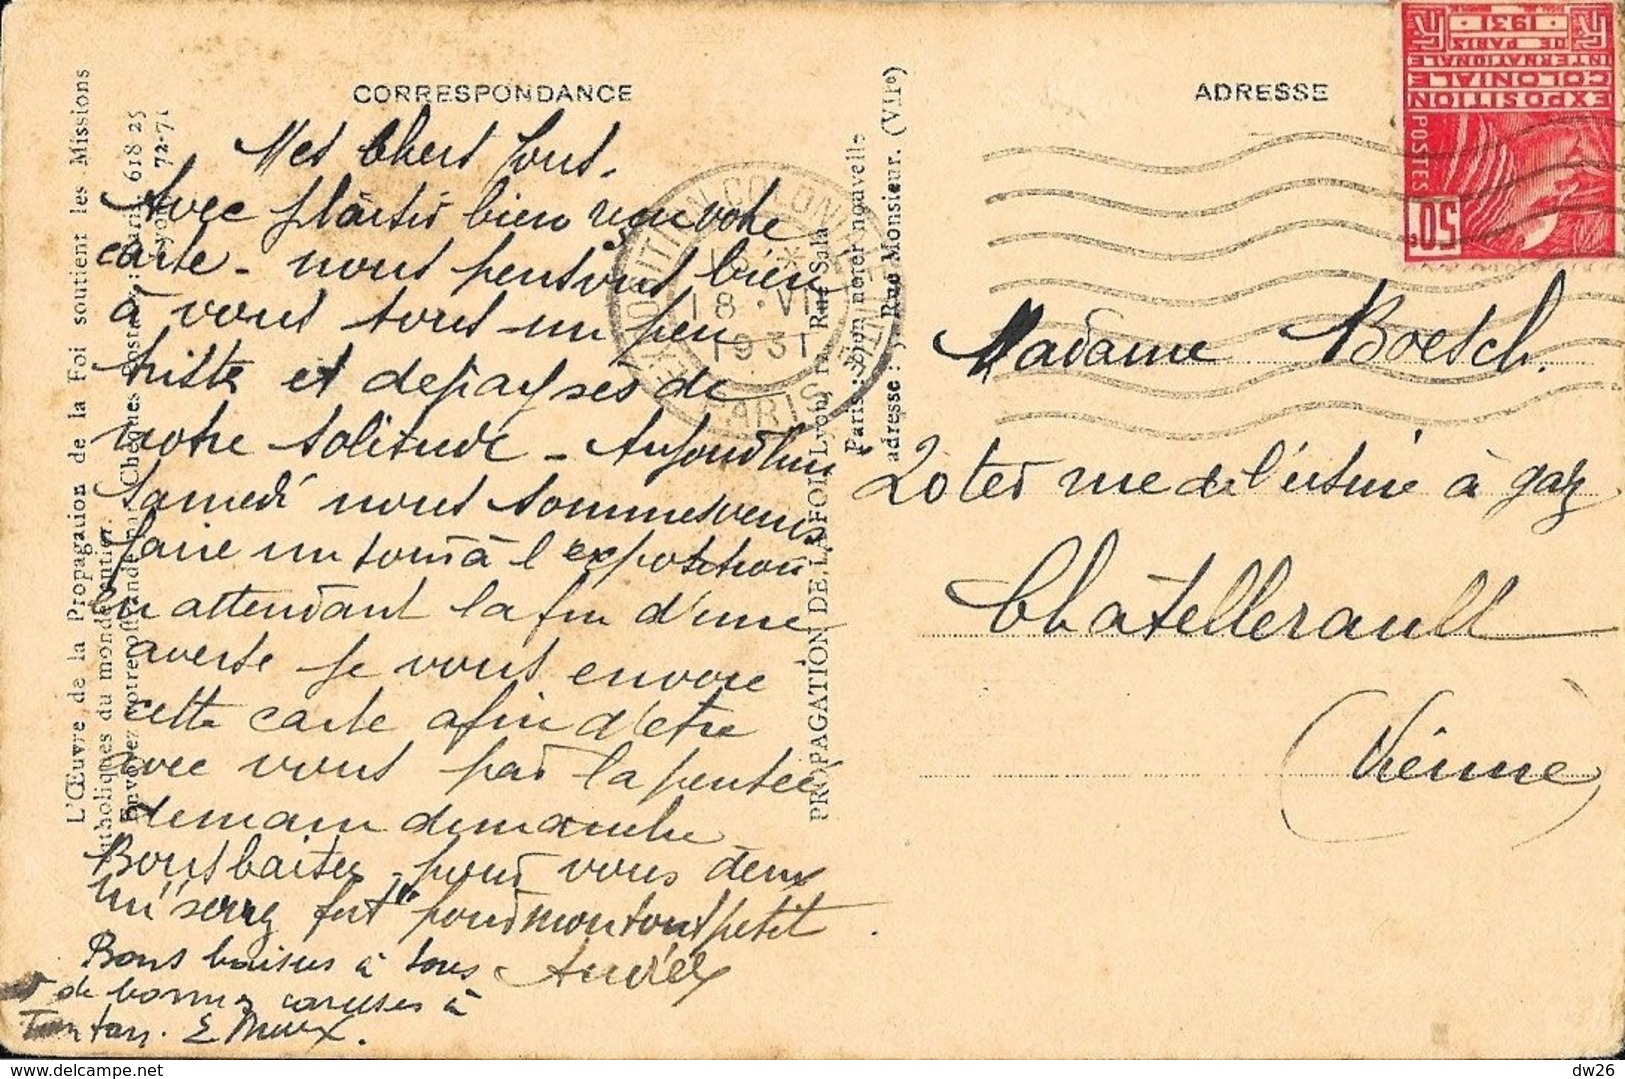 CORRESPONDANCE
Mes Chers Tous.
Avec plaisir bien reçu votre
carte - nous pensons bien
à vous tous un peu
triste et depaysés de
notre solitude - Aujourd'hui
samedi nous sommes venus
faire un tour à l'exposition
en attendant la fin d'une
averse je vous envoie
cette carte afin d'être
avec vous par la pensée
demain dimanche
Bons baisers pour vous deux
un serrez fort pour mon tout petit
Andrée
Bons baisers à tous
et de bonnes caresses à
Tantan.
L'Œuvre de la Propagation de la Foi soutient les Missions
catholiques du monde entier.
Envoyez votre offrande par Chèques Postaux : Paris 618 25
Lyon 72-71
PROPAGATION DE LA FOI Lyon, 12, Rue Sala
Paris : Bien noter nouvelle
adresse : 5, Rue Monsieur. (VIIe)
EXPOSITION COLONIALE INTLE
18 VII
1931
PARIS
ADRESSE
EXPOSITION
COLONIALE
INTERNATIONALE
DE PARIS
1931
POSTES
50c
Madame Boesch.
20ter rue de l'usine à gaz
Châtellerault
(Vienne)
delcampe.net
dw26